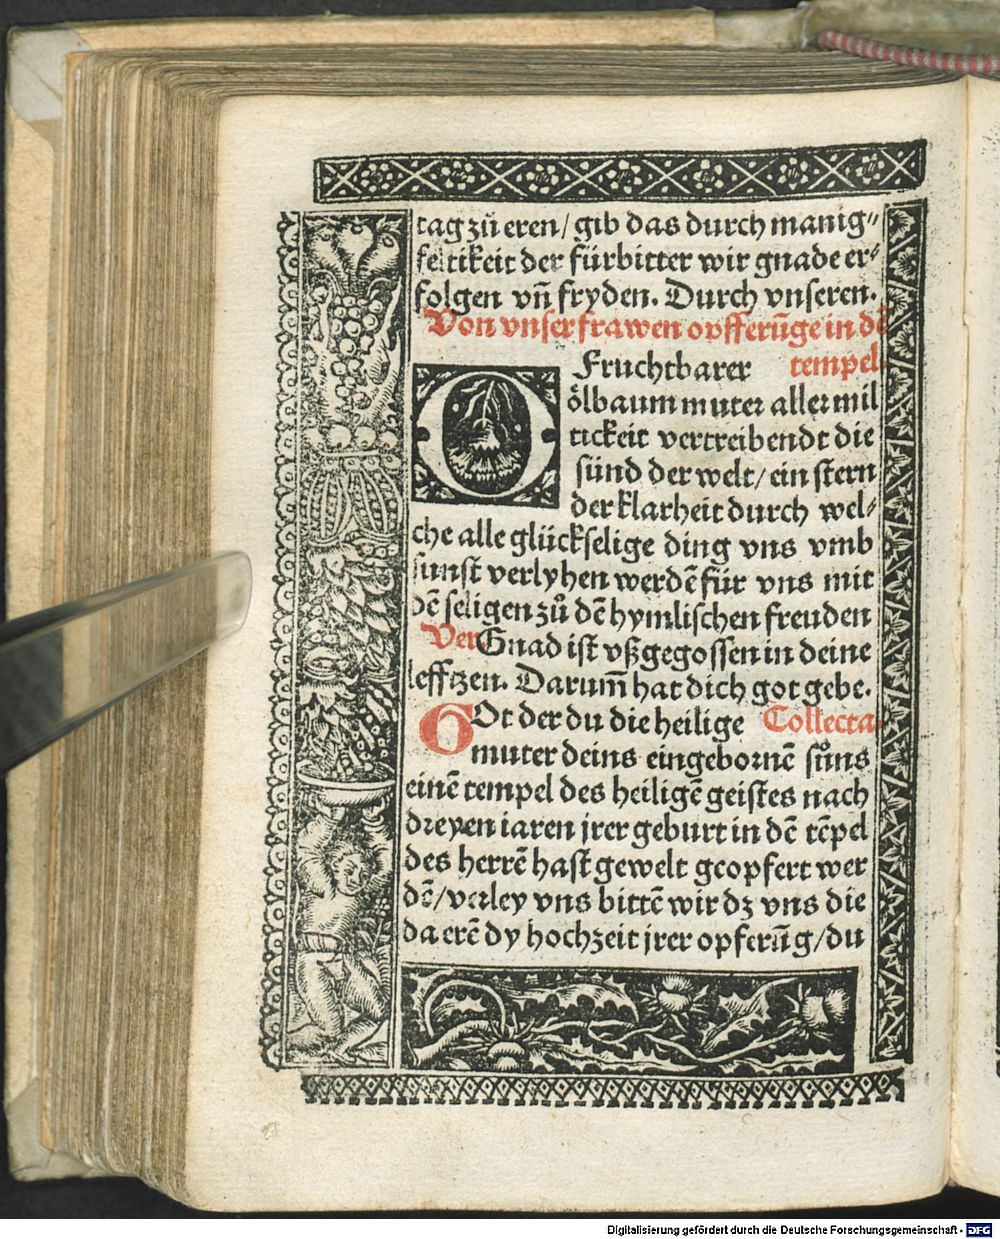 tag zů eren / gib das durch manig⸗
feltikeit der fürbitter wir gnade er⸗
folgen vn̄ fryden. Durch vnseren.
Von vnser frawen opfferūge in dē
tempel.
O Fruchtbarer
ölbaum muter aller mil
tickeit vertreibendt die
sünd der welt / ein stern
der klarheit durch wel⸗
che alle glückselige ding vns vmb
sunst verlyhen werdē für vns mit
dē seligen zů dē hymlischen freuden
Ver Gnad ist vßgegossen in deine
lefftzen. Darum̄ hat dich got gebe.
GOt der du die heilige Collecta.
muter deins eingebornē sůns
einē tempel des heiligē geistes nach
dreyen iaren jrer geburt in dē tēpel
des herrē hast gewelt geopfert wer
dē / verley vns bittē wir dz vns die
da erē dy hochzeit jrer opferūg / du
Digitalisierung gefördert durch die Deutsche Forschungsgemeinschaft - DFG